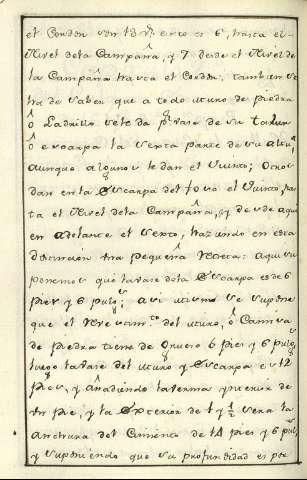 el Cordon son 13 esto es 6, hasta el
Nivel dela Campaña, y 7 desde el Nivel de
la Campaña hasta el Cordon: tambien se
ha de saber que a todo muro de piedra
ò Ladrillo se le da por vase de su talud
ò escarpa la sexta parte de su altura,
aunque algunos le dan el Quinto; Otros
dan en la Escarpa del foso el Quinto, has
ta el Nivel dela Campaña, y de de aqui
en adelante el sexto, haziendo en esta
distincion una pequeña Retreta: Aqui su
ponemos que la vase dela Escarpa es de 6
pies y 6 pulg.s; asi mismo se supone
que el Revestim.to del muro, ò Camisa
de piedra tiene de Grueso 6 pies y 6 pulg.s
luego la vase del muro y Escarpa es 12
pies, y añadiendo la berma interior de
un pie, y la Exterior de 1 y ½ sera la
anchura del Cimiento de 14 pies y 6 pulg.s
y suponiendo que su profundidad es por